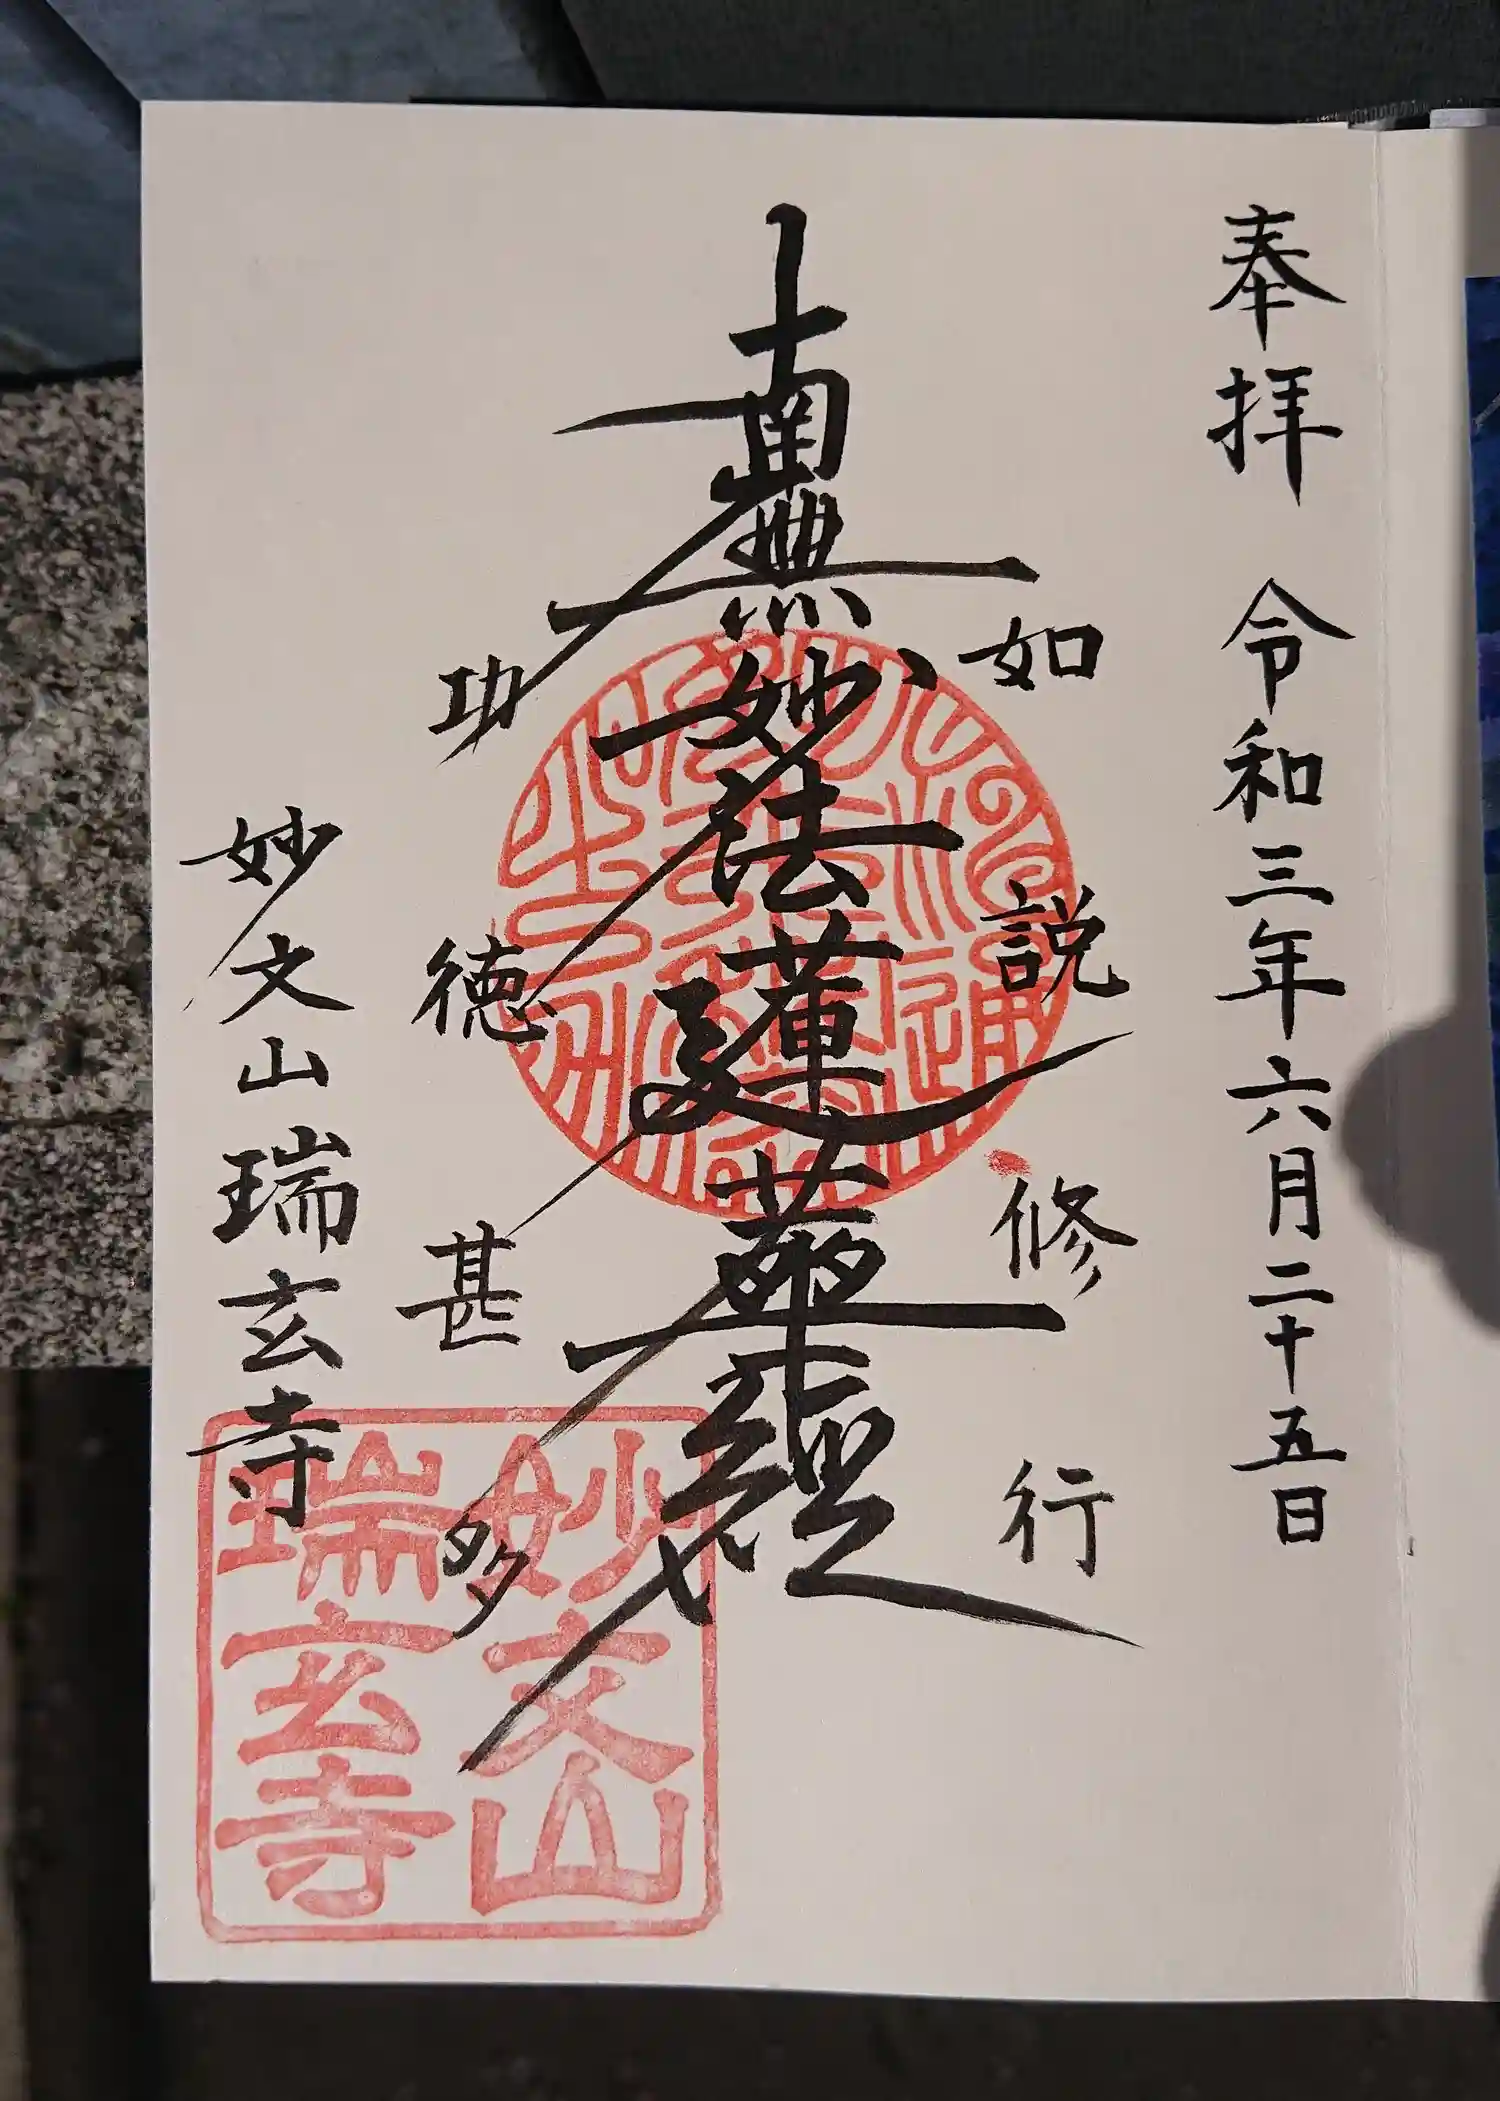 奉拝 令和三年六月二十五日
如説修行
南無妙法蓮華経
功徳甚多
妙文山瑞玄寺
妙文山
瑞玄寺